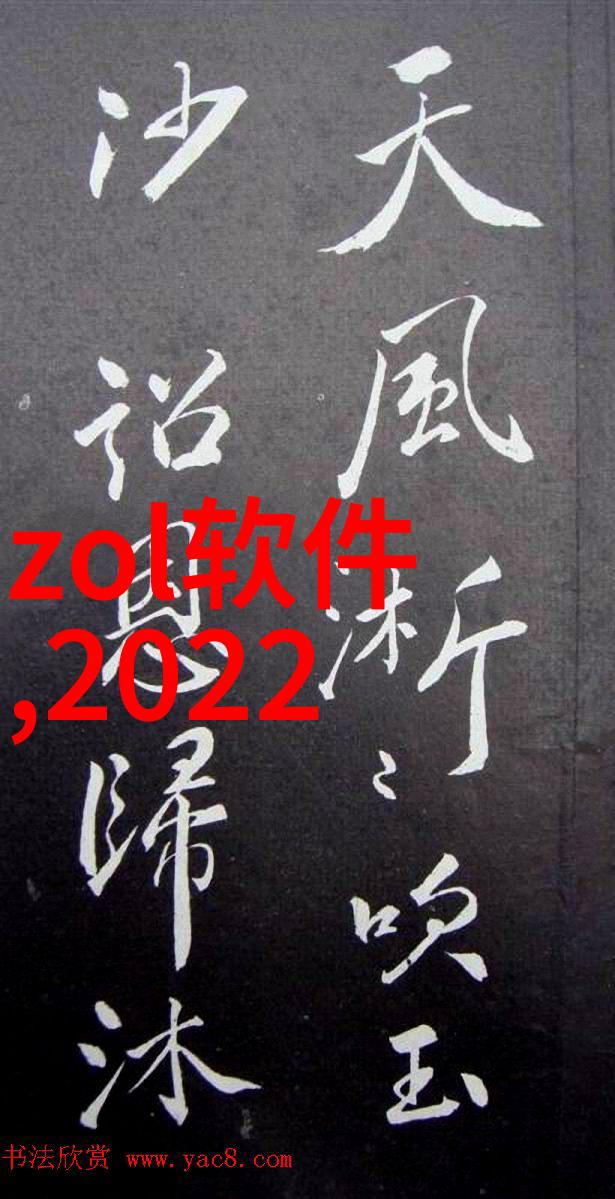 天風淅〻吹玉
沙詔恩歸沐
zol软件
,2022
书法欣赏 www.yac8.com